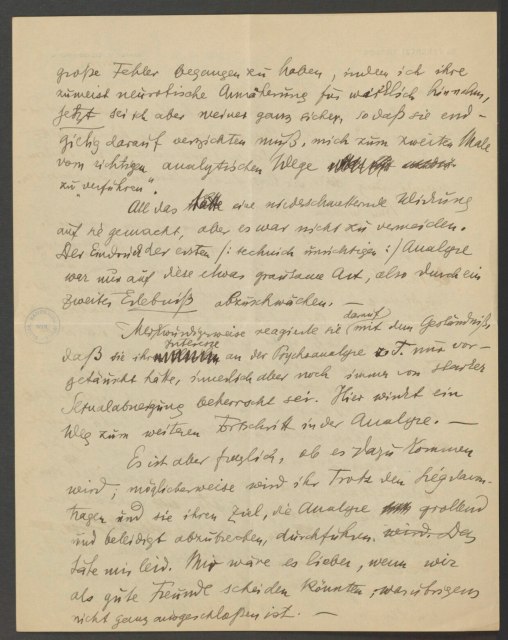 große Fehler begangen zu haben, indem ich ihre
zumeist neurotische Annäherung für wirklich hinnahm,
jetzt sei ich aber meiner ganz sicher, so daß sie end-
giltig darauf verzichten muß, mich zum zweiten Male
vom richtigen analytischen Wege
zu "verführen".
All das hatte eine niederschmetternde Wirkung
auf sie gemacht, aber es war nicht zu vermeiden.
Der Eindruck der ersten /: technisch unrichtigen :/ Analyse
war nur auf diese etwas grausame Art, also durch ein
zweites Erlebniß abzuschwächen. —
Merkwürdigerweise reagierte sie darauf mit dem Geständniß,
daß sie ihr Interesse an der Psychoanalyse z. T. nur vor-
getäuscht hätte, innerlich aber noch immer von starker
Sexualabneigung beherrscht sei. Hier winkt ein
Weg zum weiteren Fortschritt in der Analyse. —
Es ist aber fraglich, ob es dazu kommen
wird; möglicherweise wird ihr Trotz den Sieg davon-
tragen und sie ihren Ziel, die Analyse grollend
und beleidigt abzubrechen, durchführen. wird. Das
täte mir leid. Mir wäre es lieber, wenn wir
als gute Freunde scheiden könnten, was übrigens
nicht ganz ausgeschloßen ist. —